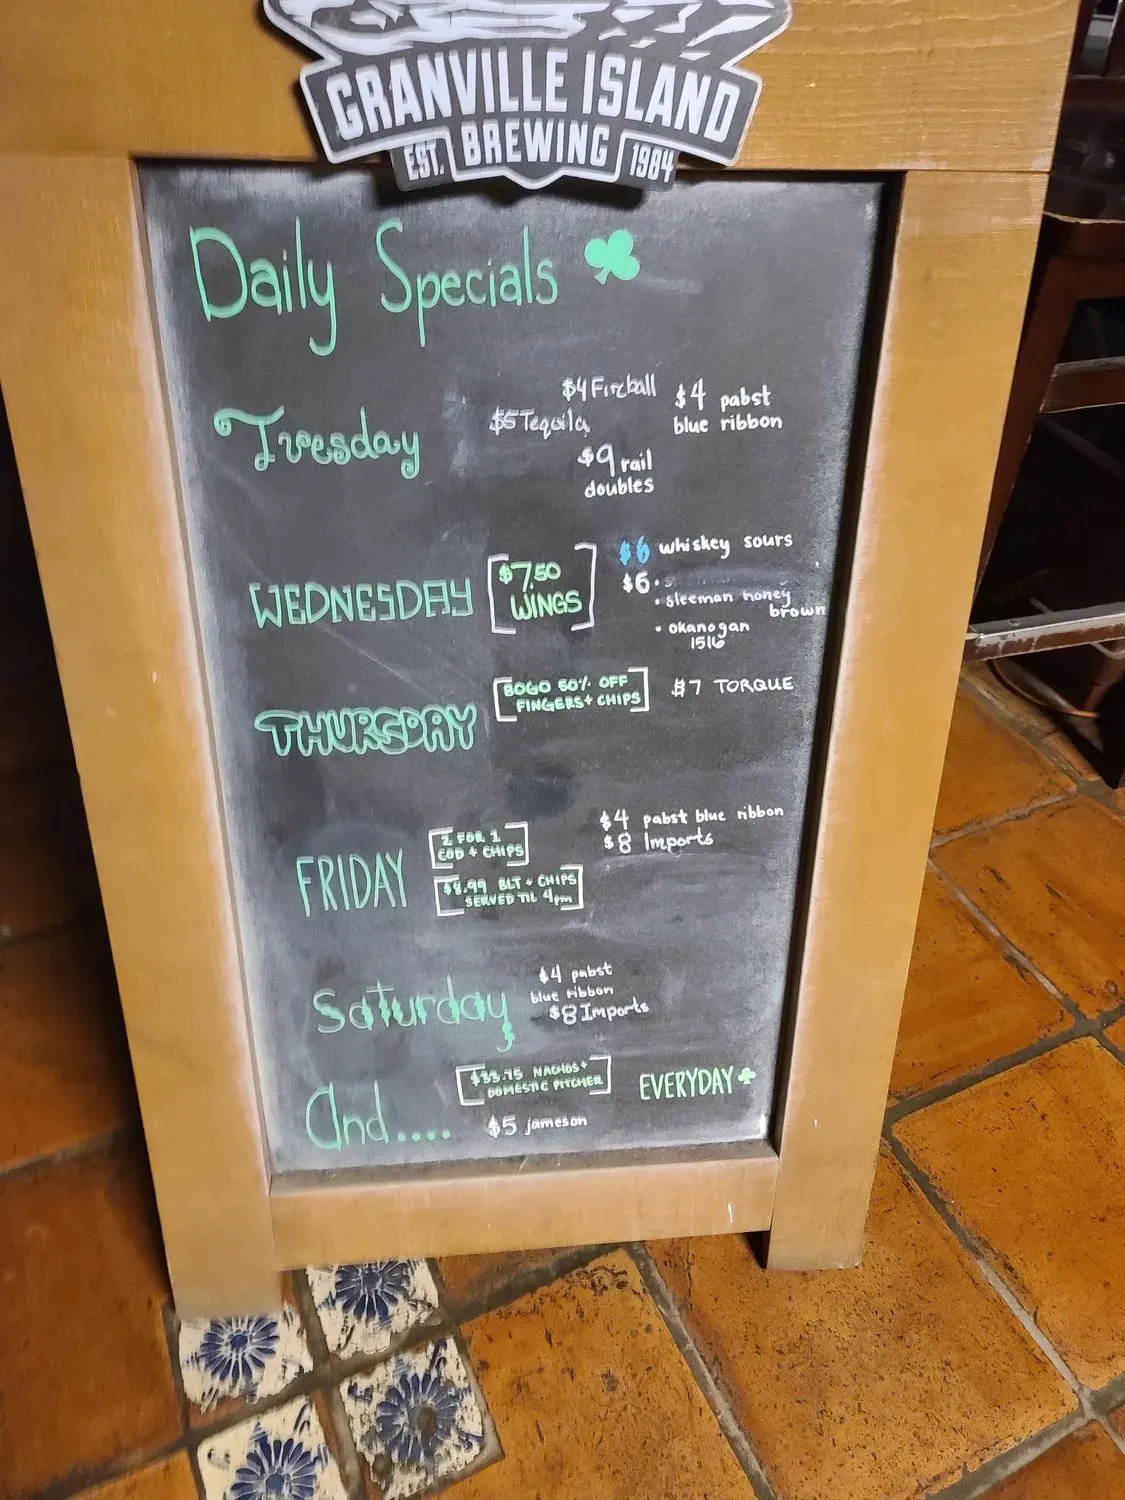 GRANVILLE ISLAND
EST. BREWING 1984
Daily Specials
Tuesday
$4 Fireball
$5 Tequila
$9 rail
doubles
$4 pabst
blue ribbon
WEDNESDAY
$7.50
WINGS
$6 whiskey sours
$6
• sleeman honey
brown
• okanogan
1516
THURSDAY
BOGO 50% OFF
FINGERS + CHIPS
$7 TORQUE
FRIDAY
2 FOR 1
COD + CHIPS
$8.99 BLT + CHIPS
SERVED TIL 4pm
$4 pabst blue ribbon
$8 Imports
Saturday
$4 pabst
blue ribbon
$8 Imports
And....
$33.75 NACHOS +
DOMESTIC PITCHER
$5 jameson
EVERYDAY